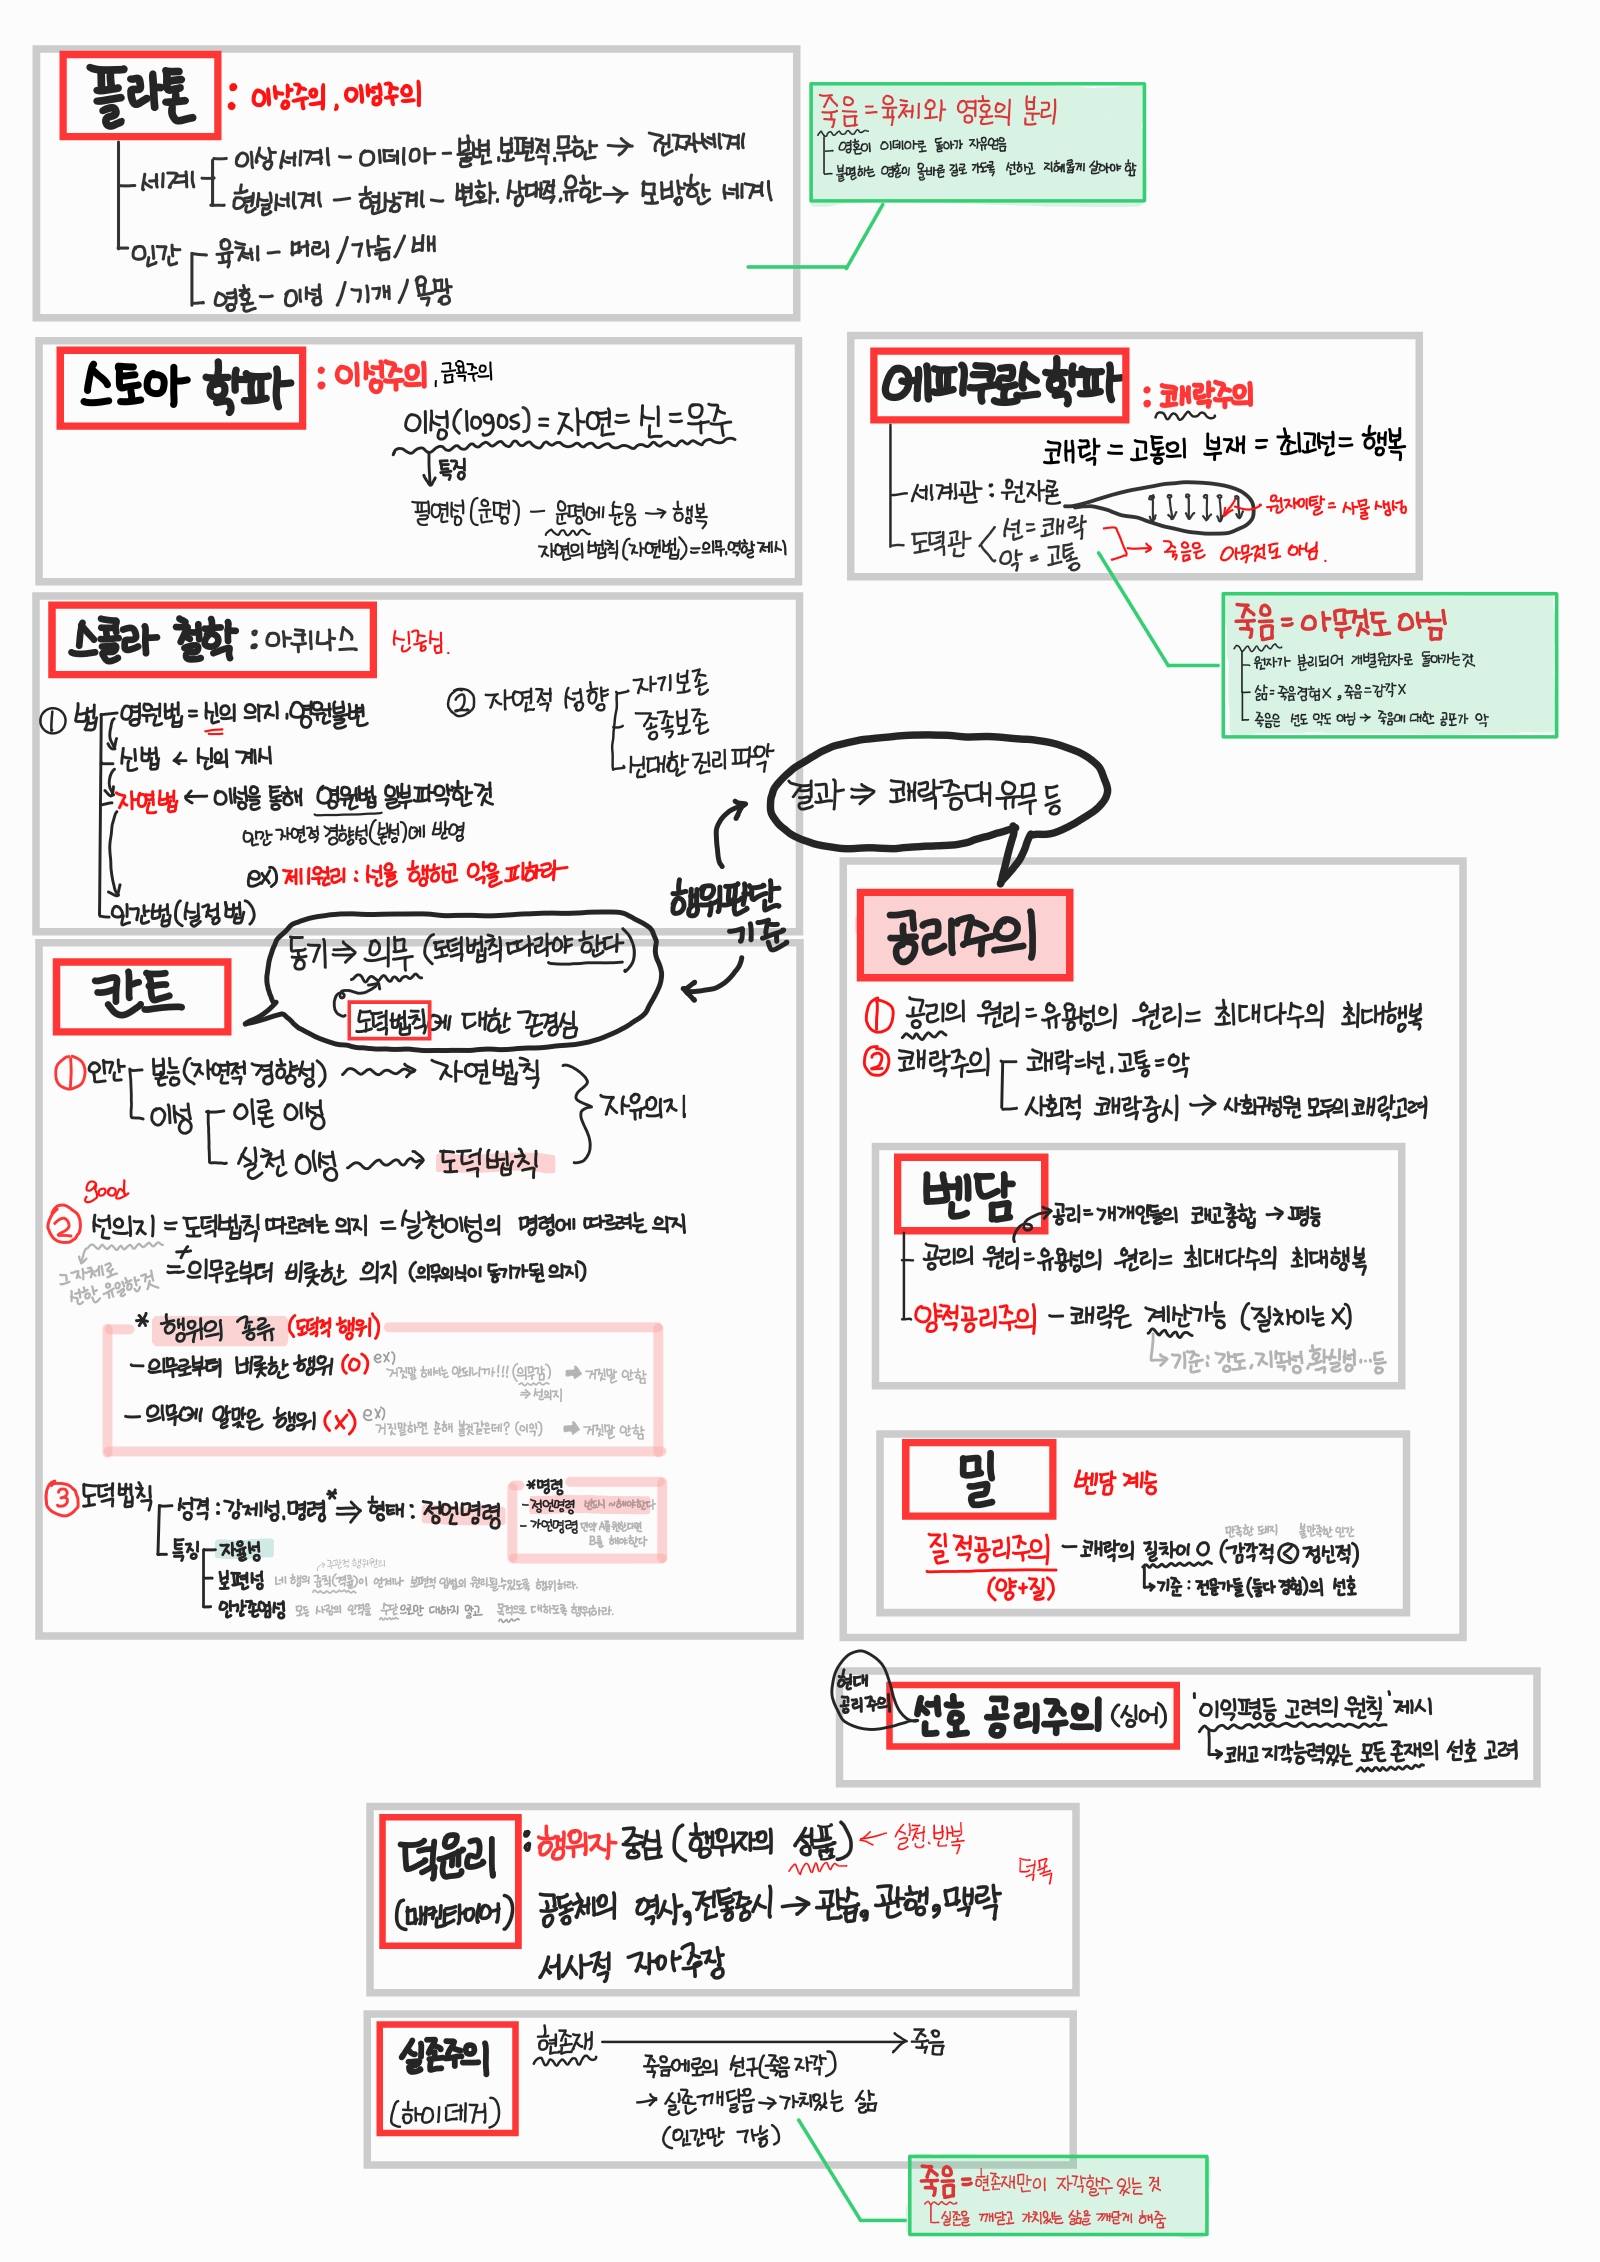 플라톤 : 이상주의, 이성주의
세계
이상세계 - 이데아 - 불변, 보편적, 무한 → 진짜세계
현실세계 - 현상계 - 변화, 상대적, 유한 → 모방한 세계
인간
육체 - 머리 / 가슴 / 배
영혼 - 이성 / 기개 / 욕망
죽음 = 육체와 영혼의 분리
영혼이 이데아로 돌아가 자유얻음
불멸하는 영혼이 올바른 길로 가도록 선하고 지혜롭게 살아야 함
스토아 학파 : 이성주의, 금욕주의
이성(logos) = 자연 = 신 = 우주
특징
필연성(운명) - 운명에 순응 → 행복
자연의 법칙(자연법) = 의무, 역할 제시
에피쿠로스학파 : 쾌락주의
쾌락 = 고통의 부재 = 최고선 = 행복
세계관 : 원자론
원자이탈 = 사물 생성
도덕관
선 = 쾌락
악 = 고통
→ 죽음은 아무것도 아님.
죽음 = 아무것도 아님
원자가 분리되어 개별원자로 돌아가는것
삶=죽음경험X, 죽음=감각X
죽음은 선도 악도 아님 → 죽음에 대한 공포가 악
스콜라 철학 : 아퀴나스 신중심.
① 법
영원법 = 신의 의지, 영원불변
신법 ← 신의 계시
자연법 ← 이성을 통해 영원법 일부파악한 것
인간 자연적 경향성(본성)에 반영
ex) 제1원리 : 선을 행하고 악을 피하라
인간법(실정법)
② 자연적 성향
자기보존
종족보존
신대한 진리 파악
결과 ⇒ 쾌락증대 유무 등
행위판단
기준
칸트
동기 ⇒ 의무 (도덕법칙 따라야 한다)
도덕법칙에 대한 존경심
① 인간
본능(자연적 경향성) → 자연법칙
이성
이론 이성
실천 이성 → 도덕법칙
자유의지
good
② 선의지 = 도덕법칙 따르려는 의지 = 실천이성의 명령에 따르려는 의지
그자체로
선한 유일한것
= 의무로부터 비롯한 의지 (의무의식이 동기가된 의지)
* 행위의 종류 (도덕적 행위)
- 의무로부터 비롯한 행위 (O) ex) 거짓말 해서는 안되니까!!! (의무감) ➡ 거짓말 안함
⇒ 선의지
- 의무에 알맞은 행위 (X) ex) 거짓말하면 손해 볼것같은데? (이익) ➡ 거짓말 안함
③ 도덕법칙
성격 : 강제성, 명령* ⇒ 형태 : 정언명령
*명령
- 정언명령 반드시 ~해야한다
- 가언명령 만약 A를 원한다면
B를 해야한다
특징
자율성
→주관적 행위원리
보편성 네 행위 준칙(격률)이 언제나 보편적 입법의 원리될수있도록 행위하라.
인간존엄성 모든 사람의 인격을 수단으로만 대하지 말고 목적으로 대하도록 행위하라.
공리주의
① 공리의 원리 = 유용성의 원리 = 최대다수의 최대행복
② 쾌락주의
쾌락=선, 고통=악
사회적 쾌락중시 → 사회구성원 모두의 쾌락고려
벤담
공리 = 개개인들의 쾌고총합 → 평등
공리의 원리 = 유용성의 원리 = 최대다수의 최대행복
양적공리주의 - 쾌락은 계산가능 (질차이는 X)
기준 : 강도, 지속성, 확실성…등
밀 벤담 계승
만족한 돼지 불만족한 인간
질적공리주의 - 쾌락의 질차이 O (감각적 < 정신적)
(양+질)
기준 : 전문가들(둘다 경험)의 선호
현대
공리주의
선호 공리주의 (싱어)
'이익평등 고려의 원칙' 제시
쾌고 지각능력있는 모든 존재의 선호 고려
덕윤리
(매킨타이어)
: 행위자 중심 (행위자의 성품) ← 실천, 반복
덕목
공동체의 역사, 전통중시 → 관습, 관행, 맥락
서사적 자아 주장
실존주의
(하이데거)
현존재 → 죽음
죽음에로의 선구(죽음 자각)
→ 실존 깨달음 → 가치있는 삶
(인간만 가능)
죽음 = 현존재만이 자각할수 있는 것
실존을 깨닫고 가치있는 삶을 깨닫게 해줌